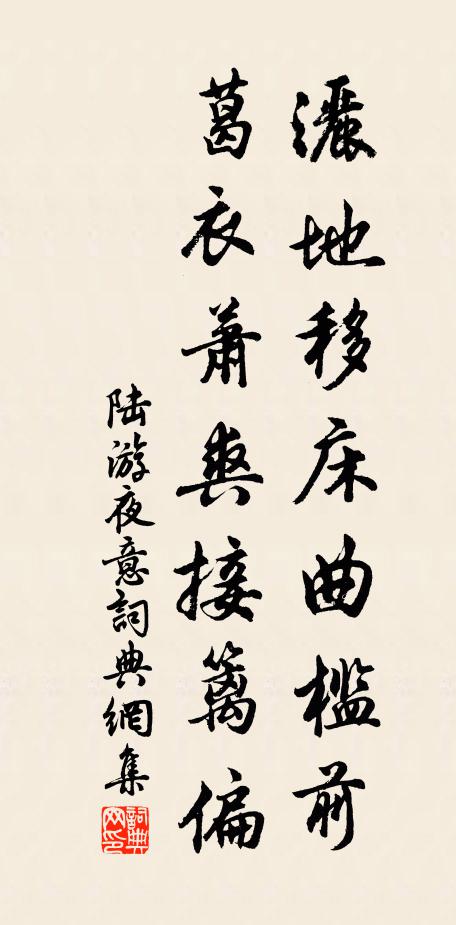 灑地移床曲檻前
葛衣蕭爽接篱偏
陆游夜意詞典網集
詞典网印